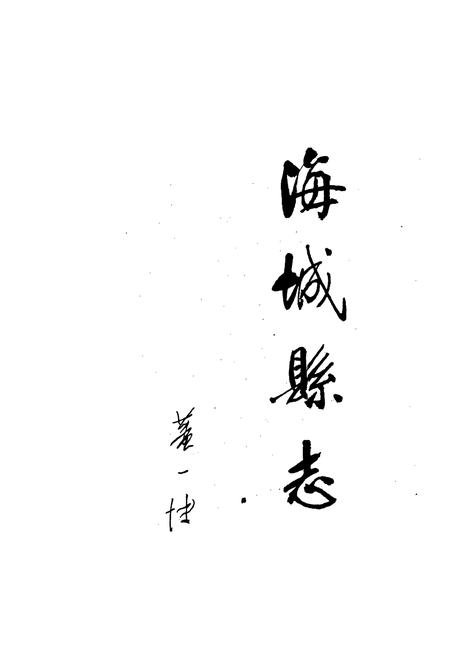 海城縣志
董一博